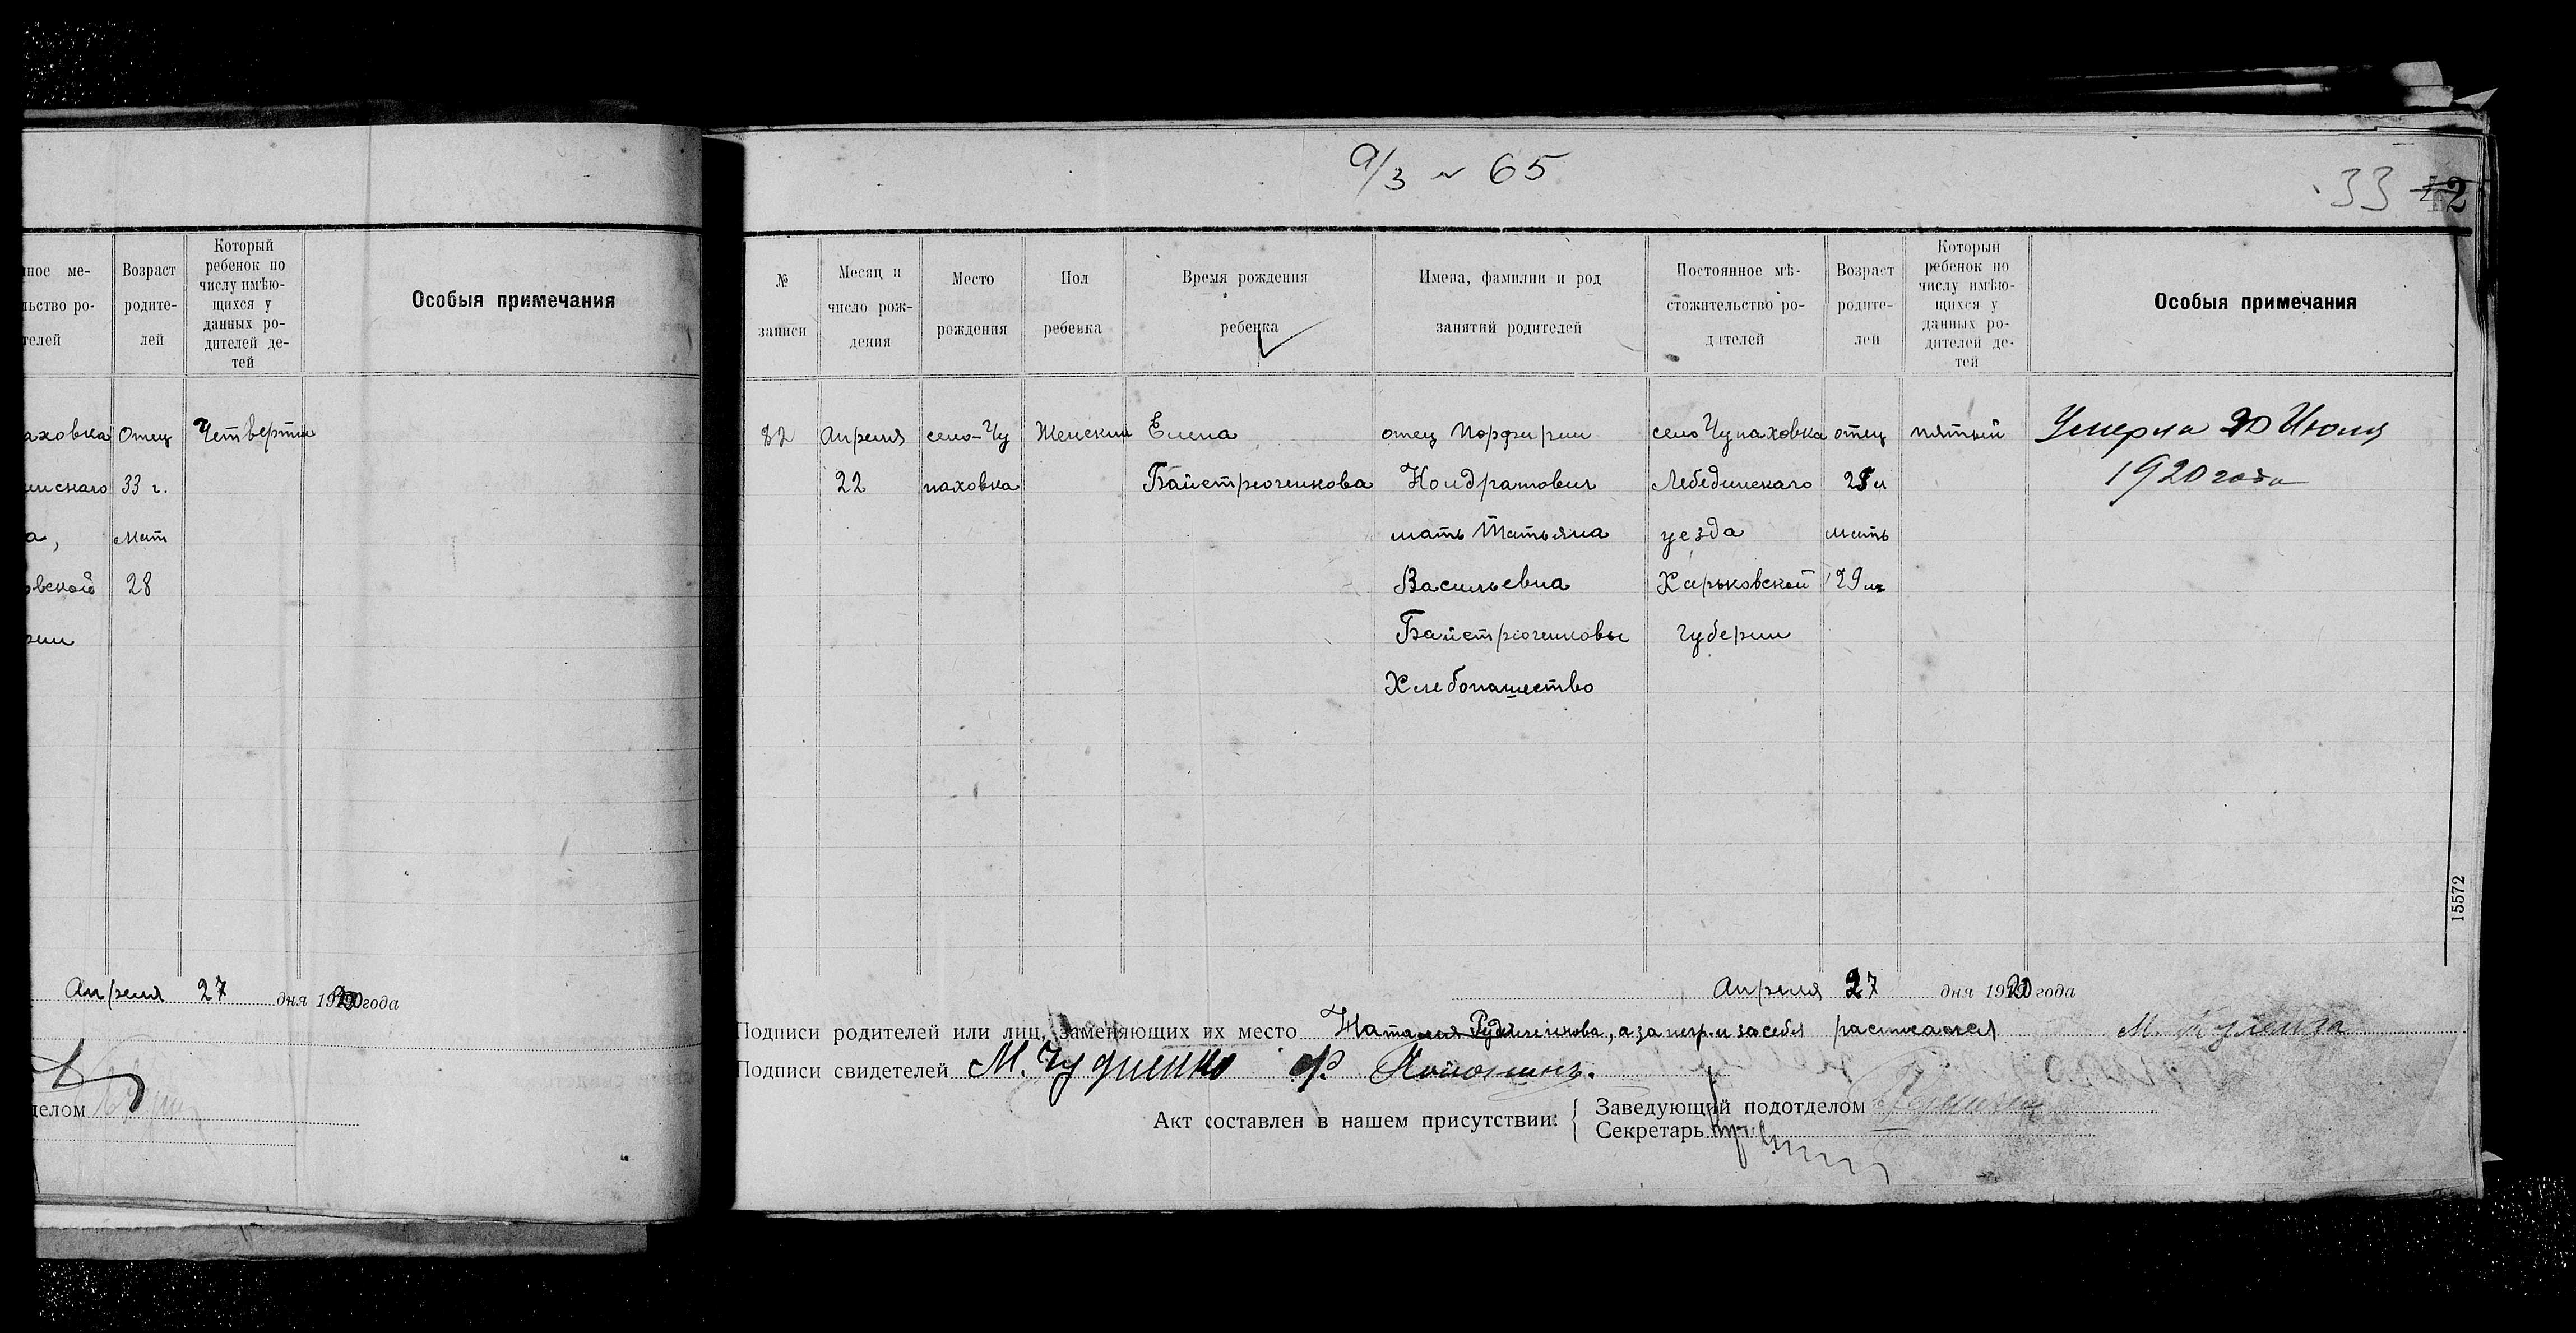 а/з № 65
33
42
ное ме-
льство ро-
телей
Возраст
родите-
лей
Который
ребенок по
числу имѣю-
щихся у
данных ро-
дителей де-
тей
Особыя примечания
аховка Отец Четверти
инскаго 33 г.
а, мат
овской 28
рнии
Апреля 27 дня 1920 года
делом
№
записи
Месяц и
число рож-
дения
Место
рождения
Пол
ребенка
Время рождения
ребенка
Имена, фамилии и род
занятий родителей
Постоянное мѣ-
стожительство ро-
дителей
Возраст
родите-
лей
Который
ребенок по
числу имѣю-
щихся у
данных ро-
дителей де-
тей
Особыя примечания
82 Апреля село-Чу Женский Елена отец Порфирии село Чупаховка отец пятый Умерла 20 Июля
22 паховка Байстрюченкова Кондратович Лебединскаго 28 л 1920 года
мать Татьяна уезда мать
Васильевна Харьковской 29 л
Байстрюченковы губернии
Хлебопашество
15572
Апреля 27 дня 1920 года
Подписи родителей или лиц, заменяющих их место Наталия, а за негр. и за себя расписался М.
Подписи свидетелей М. Чудненко Ф.
Акт составлен в нашем присутствии: Заведующий подотделом
Секретарь